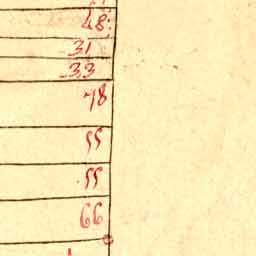 48
31
33
48
55
55
66